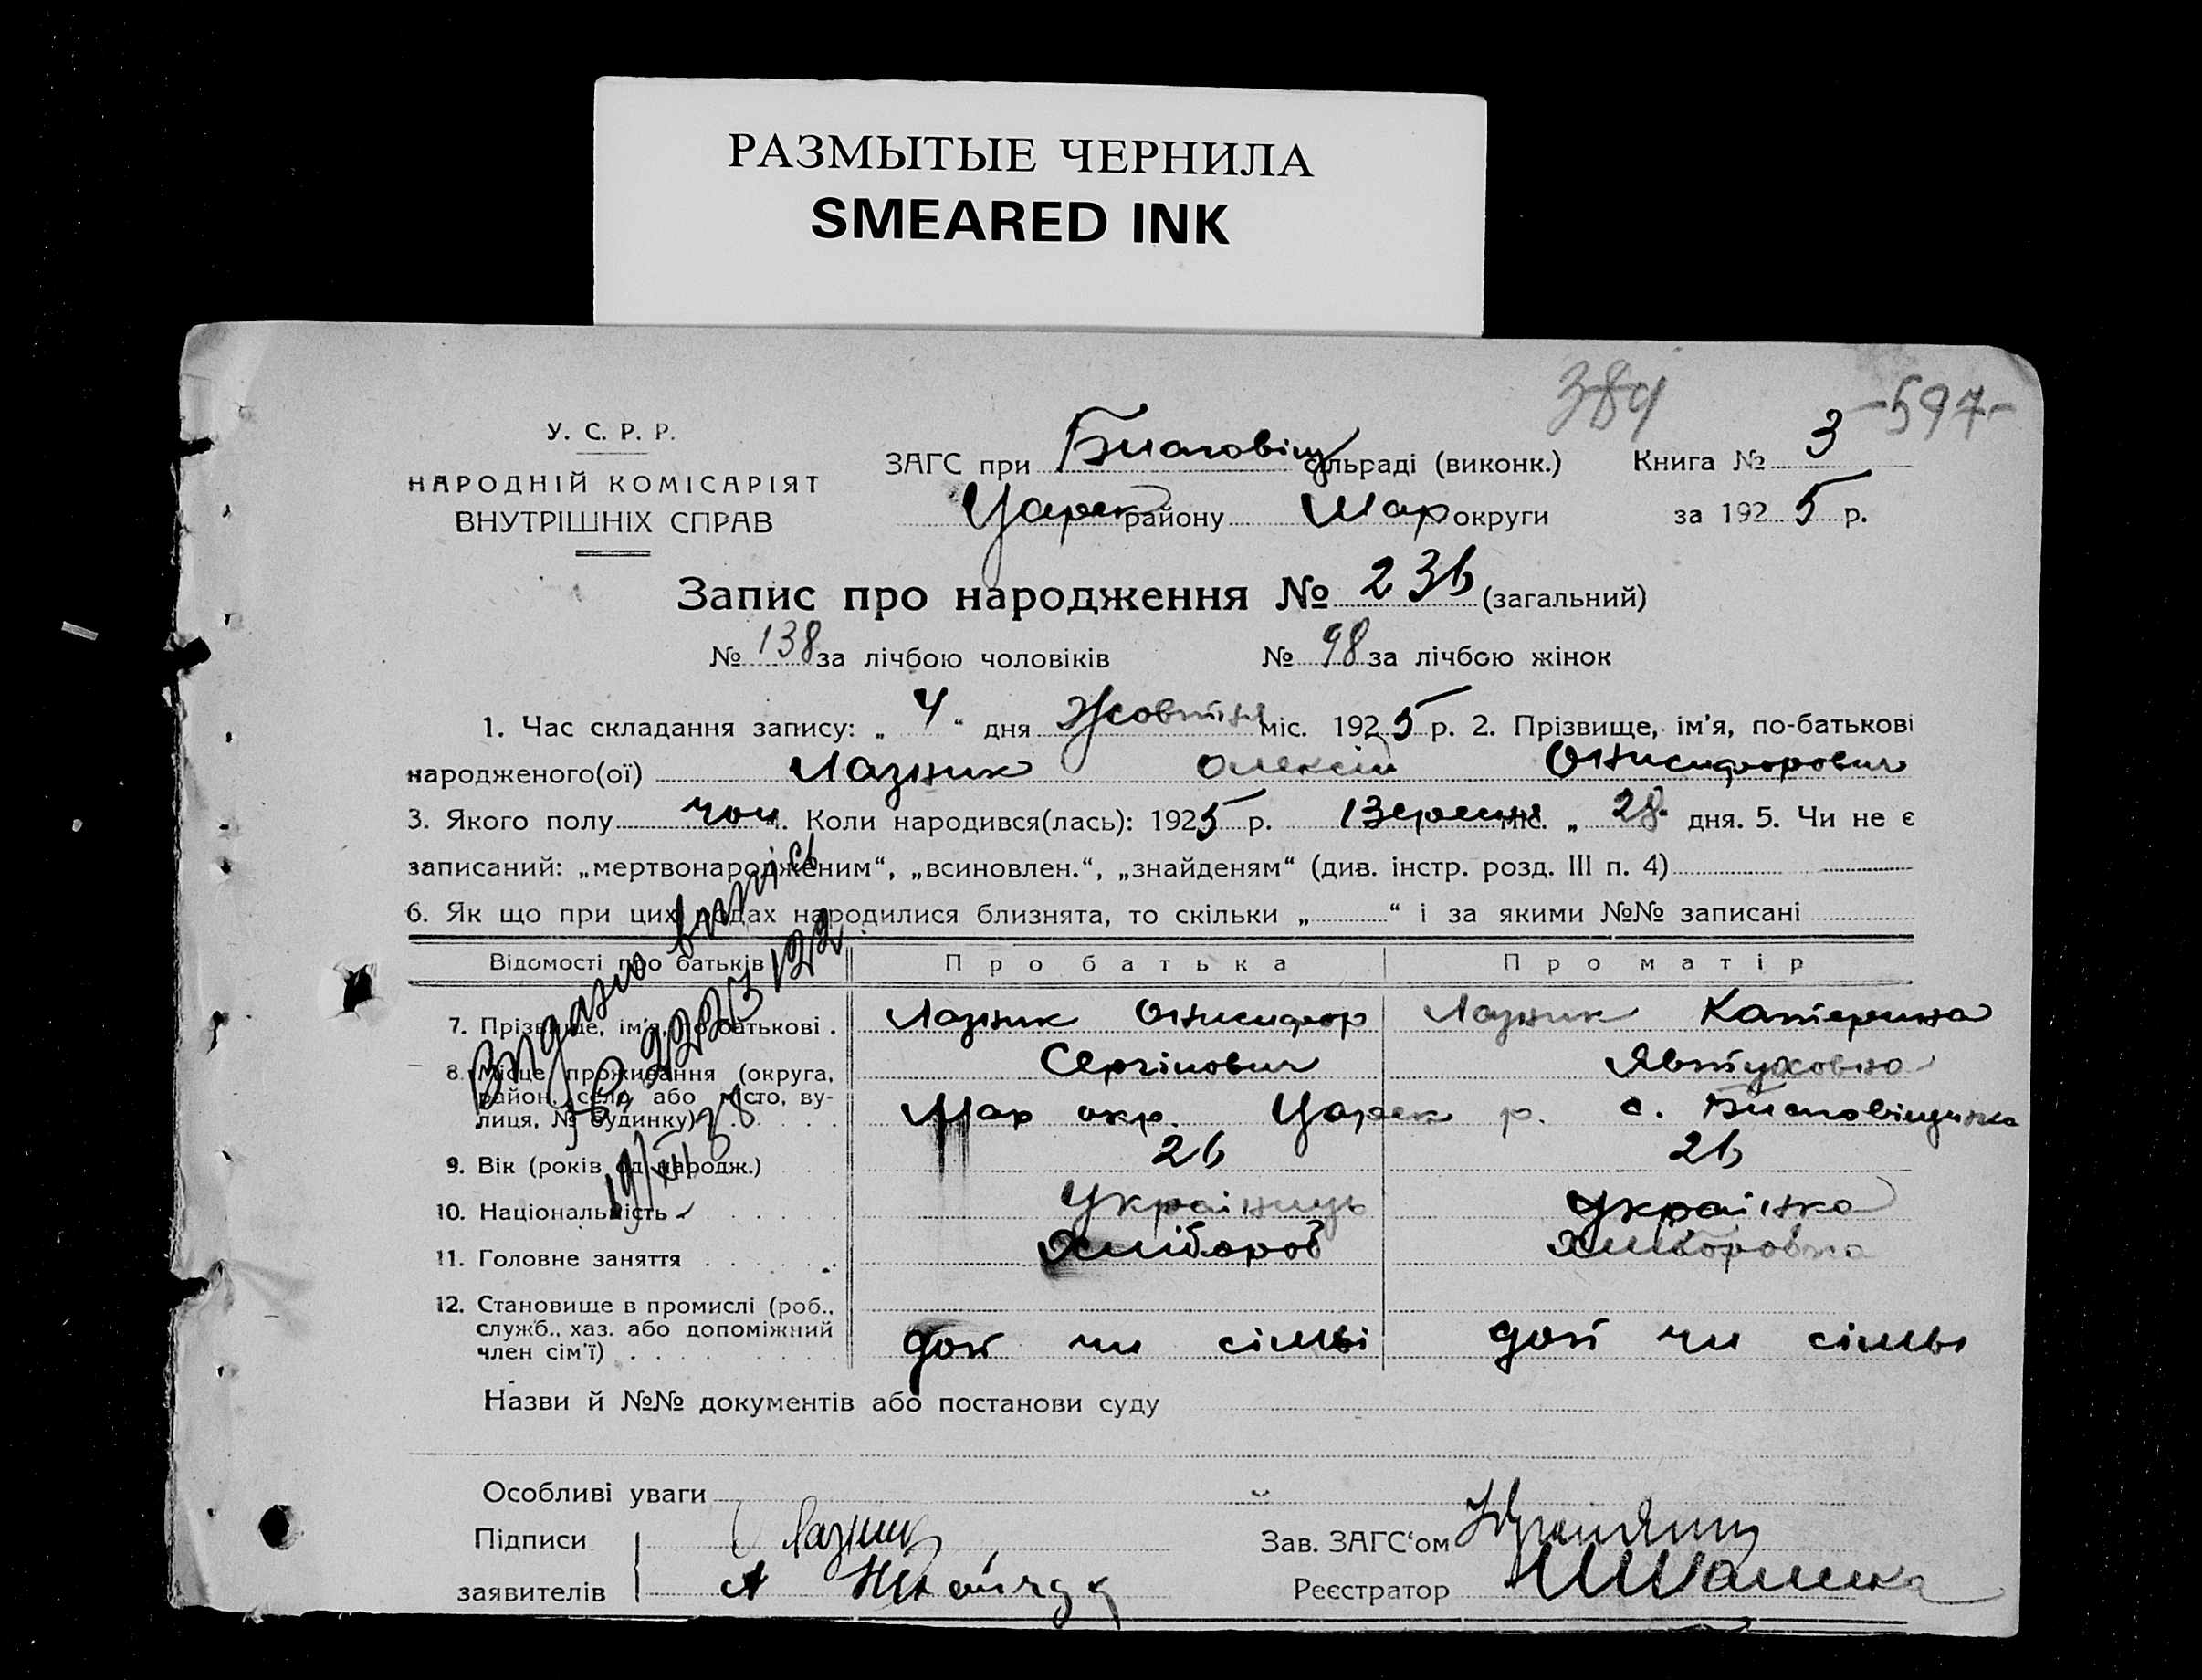 РАЗМЫТЫЕ ЧЕРНИЛА
SMEARED INK
384 -597-
У. С. Р. Р.
НАРОДНІЙ КОМІСАРІЯТ
ВНУТРІШНІХ СПРАВ
ЗАГС при сільраді (виконк.) Книга № 3
Царек району Шар округи за 1925 р.
Запис про народження № 236 (загальний)
№ 138 за лічбою чоловіків № 98 за лічбою жінок
1. Час складання запису: „ 4 “ дня Жовтня міс. 1925 р. 2. Прізвище, ім'я, по-батькові
народженого(ої) Лазник Олексій Онисифорович
3. Якого полу чол 4. Коли народився(лась): 1925 р. Вересня міс. „ 28 дня. 5. Чи не є
записаний: „мертвонародженим“, „всиновлен.“, „знайденям“ (див. інстр. розд. III п. 4)
6. Як що при цих родах народилися близнята, то скільки „ “ і за якими №№ записані
Відомості про батьків Про батька Про матір
7. Прізвище, ім'я, по батькові . Лазник Онисифор Лазник Катерина
Сергійович Явтуховна
8. Місце проживання (округа, район, село або місто, вулиця, № будинку) Шар окр. Царек р. с.
9. Вік (років од народж.) 26 26
10. Національність Українець Українка
11. Головне заняття Хлібороб Хліборобка
12. Становище в промислі (роб., служб., хаз. або допоміжний член сім'ї) доп чл сімьі доп чл сімьі
Видано випись
№ 222
19/XII 28
Назви й №№ документів або постанови суду
Особливі уваги
Підписи Лазник Зав. ЗАГС‘ом
заявителів Реєстратор